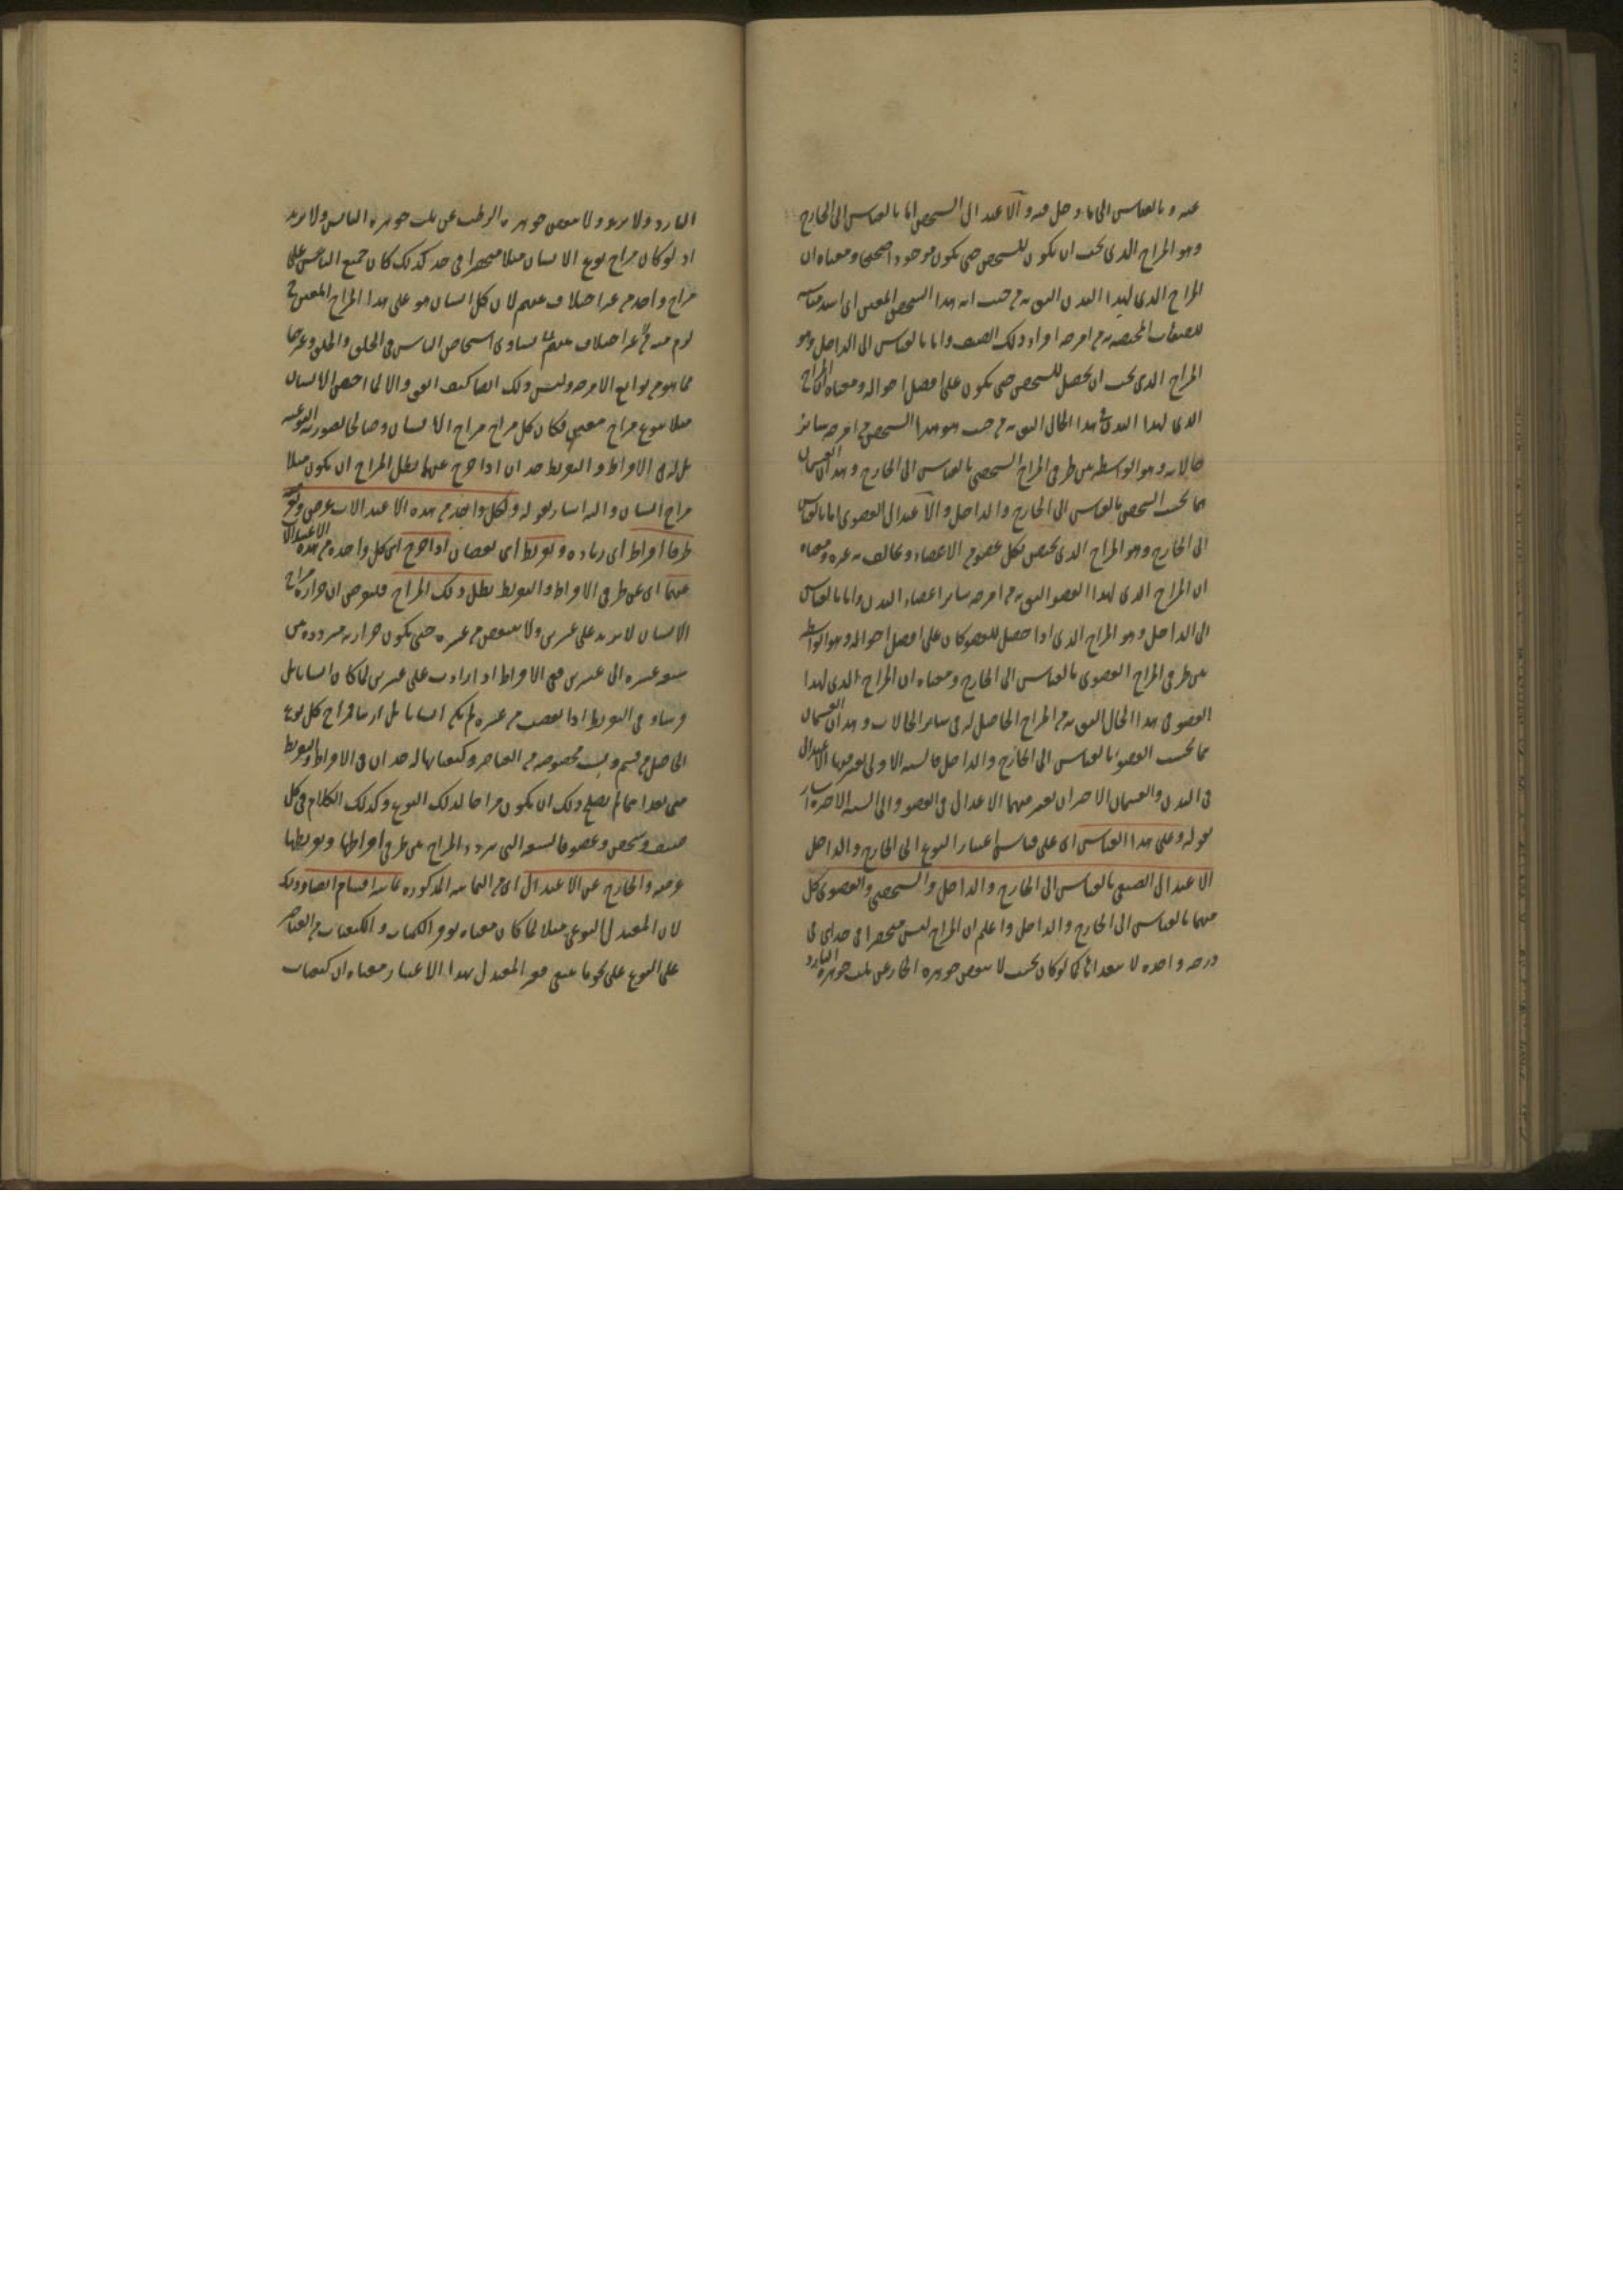 عنه و بالقياس الى ما دخل فيه و الاعتدال الشخصى اما بالقياس الى الخارج
وهو المزاج الذى يجب ان يكون للشخص حتى يكون موجودا صحيحا و معناه ان
المزاج الذى لهذا البدن اليق به من حيث انه هذا الشخص المعين اى اشد مناسبة
للصفات المختصة به من امزجة افراد ذلك الصنف واما بالقياس الى الداخل وهو
المزاج الذى يجب ان يحصل للشخص حتى يكون على افضل احواله ومعناه ان المزاج
الذى لهذا البدن فى هذا الحال اليق به من حيث هو هذا الشخص من امزجة سائر
حالاته وهو الواسطة بين طرفى المزاج الشخصى بالقياس الى الخارج وهذان القسمان
هما بحسب الشخص بالقياس الى الخارج والداخل و الاعتدال العضوى اما بالقياس
الى الخارج وهو المزاج الذى يختص بكل عضو من الاعضاء ويخالف به غيره ومعناه
ان المزاج الذى لهذا العضو اليق به من امزجة سائر اعضاء البدن واما بالقياس
الى الداخل وهو المزاج الذى اذا حصل للعضو كان على افضل احواله وهو الواسطة
بين طرفى المزاج العضوى بالقياس الى الخارج ومعناه ان المزاج الذى لهذا
العضو فى هذا الحال اليق به من المزاج الحاصل له فى سائر الحالات وهذان القسمان
هما بحسب العضو بالقياس الى الخارج والداخل فالستة الاولى يعتبر فيها الاعتدال
فى البدن والقسمان الاخيران يعتبر فيهما الاعتدال فى العضو والى الستة الاخيرة اشار
بقوله وعلى هذا القياس اى على قياس اعتبار النوع الى الخارج والداخل
الاعتدال الصنفى بالقياس الى الخارج والداخل والشخصى والعضوى كل
منهما بالقياس الى الخارج والداخل واعلم ان المزاج ليس منحصرا فى حد اى فى
درجة واحدة لا يتعداها كما لو كان بحيث لا ينقص جوهره الحار عن ثلث جوهره البارد
البارد ولا يزيد ولا ينقص جوهره الرطب عن ثلث جوهره اليابس ولا يزيد
اذ لو كان مزاج نوع الانسان مثلا منحصرا فى حد كذلك كان جميع الناس على
مزاج واحد من غير اختلاف بينهم لان كل انسان هو على هذا المزاج المعين
لزم منه من غير اختلاف بينهم تساوى اشخاص الناس فى الخلق والخلق وغيرهما
مما هو من توابع الامزجة وليس ذلك ايضا كيف اتفق والا لما اختص الانسان
مثلا بنوع مزاج معين فكان كل مزاج مزاج الانسان وصالحا لصورته النوعية
بل له فى الافراط والتفريط حدان اذا خرج عنهما بطل المزاج ان يكون مثلا
مزاج انسان واليه اشار بقوله ولكل واحد من هذه الاعتدالات عرض وله
طرفا افراط اى زيادة و تفريط اى نقصان اذا خرج اى كل واحد من هذه الاعتدالات
عنهما اى عن طرفى الافراط والتفريط بطل ذلك المزاج فلنفرض ان حرارة مزاج
الانسان لا يزيد على عشرين ولا ينقص من عشرة حتى يكون حرارته مترددة بين
عشرة الى عشرين ففى الافراط اذا زادت على عشرين لما كان انسانا بل
فرسا و فى التفريط اذا نقصت من عشرة لم يكن انسانا بل ارنبا فمزاج كل نوع
الحاصل من قسم ونسب مخصوصة من العناصر وكيفياتها له حدان فى الافراط والتفريط
متى تعداهما لم يصلح ذلك ان يكون مزاجا لذلك النوع وكذلك الكلام فى كل
صنف وشخص وعضو فالنسبة التى يتردد المزاج بين طرفى افراطها وتفريطها
عرضه والخارج عن الاعتدال اى من الثمانية المذكورة ثمانية اقسام ايضا وذلك
لان المعتدل النوعى مثلا لما كان معناه توفر الكميات والكيفيات من العناصر
على النوع على نحو ما ينبغى فغير المعتدل بهذا الاعتبار معناه ان كيفيات